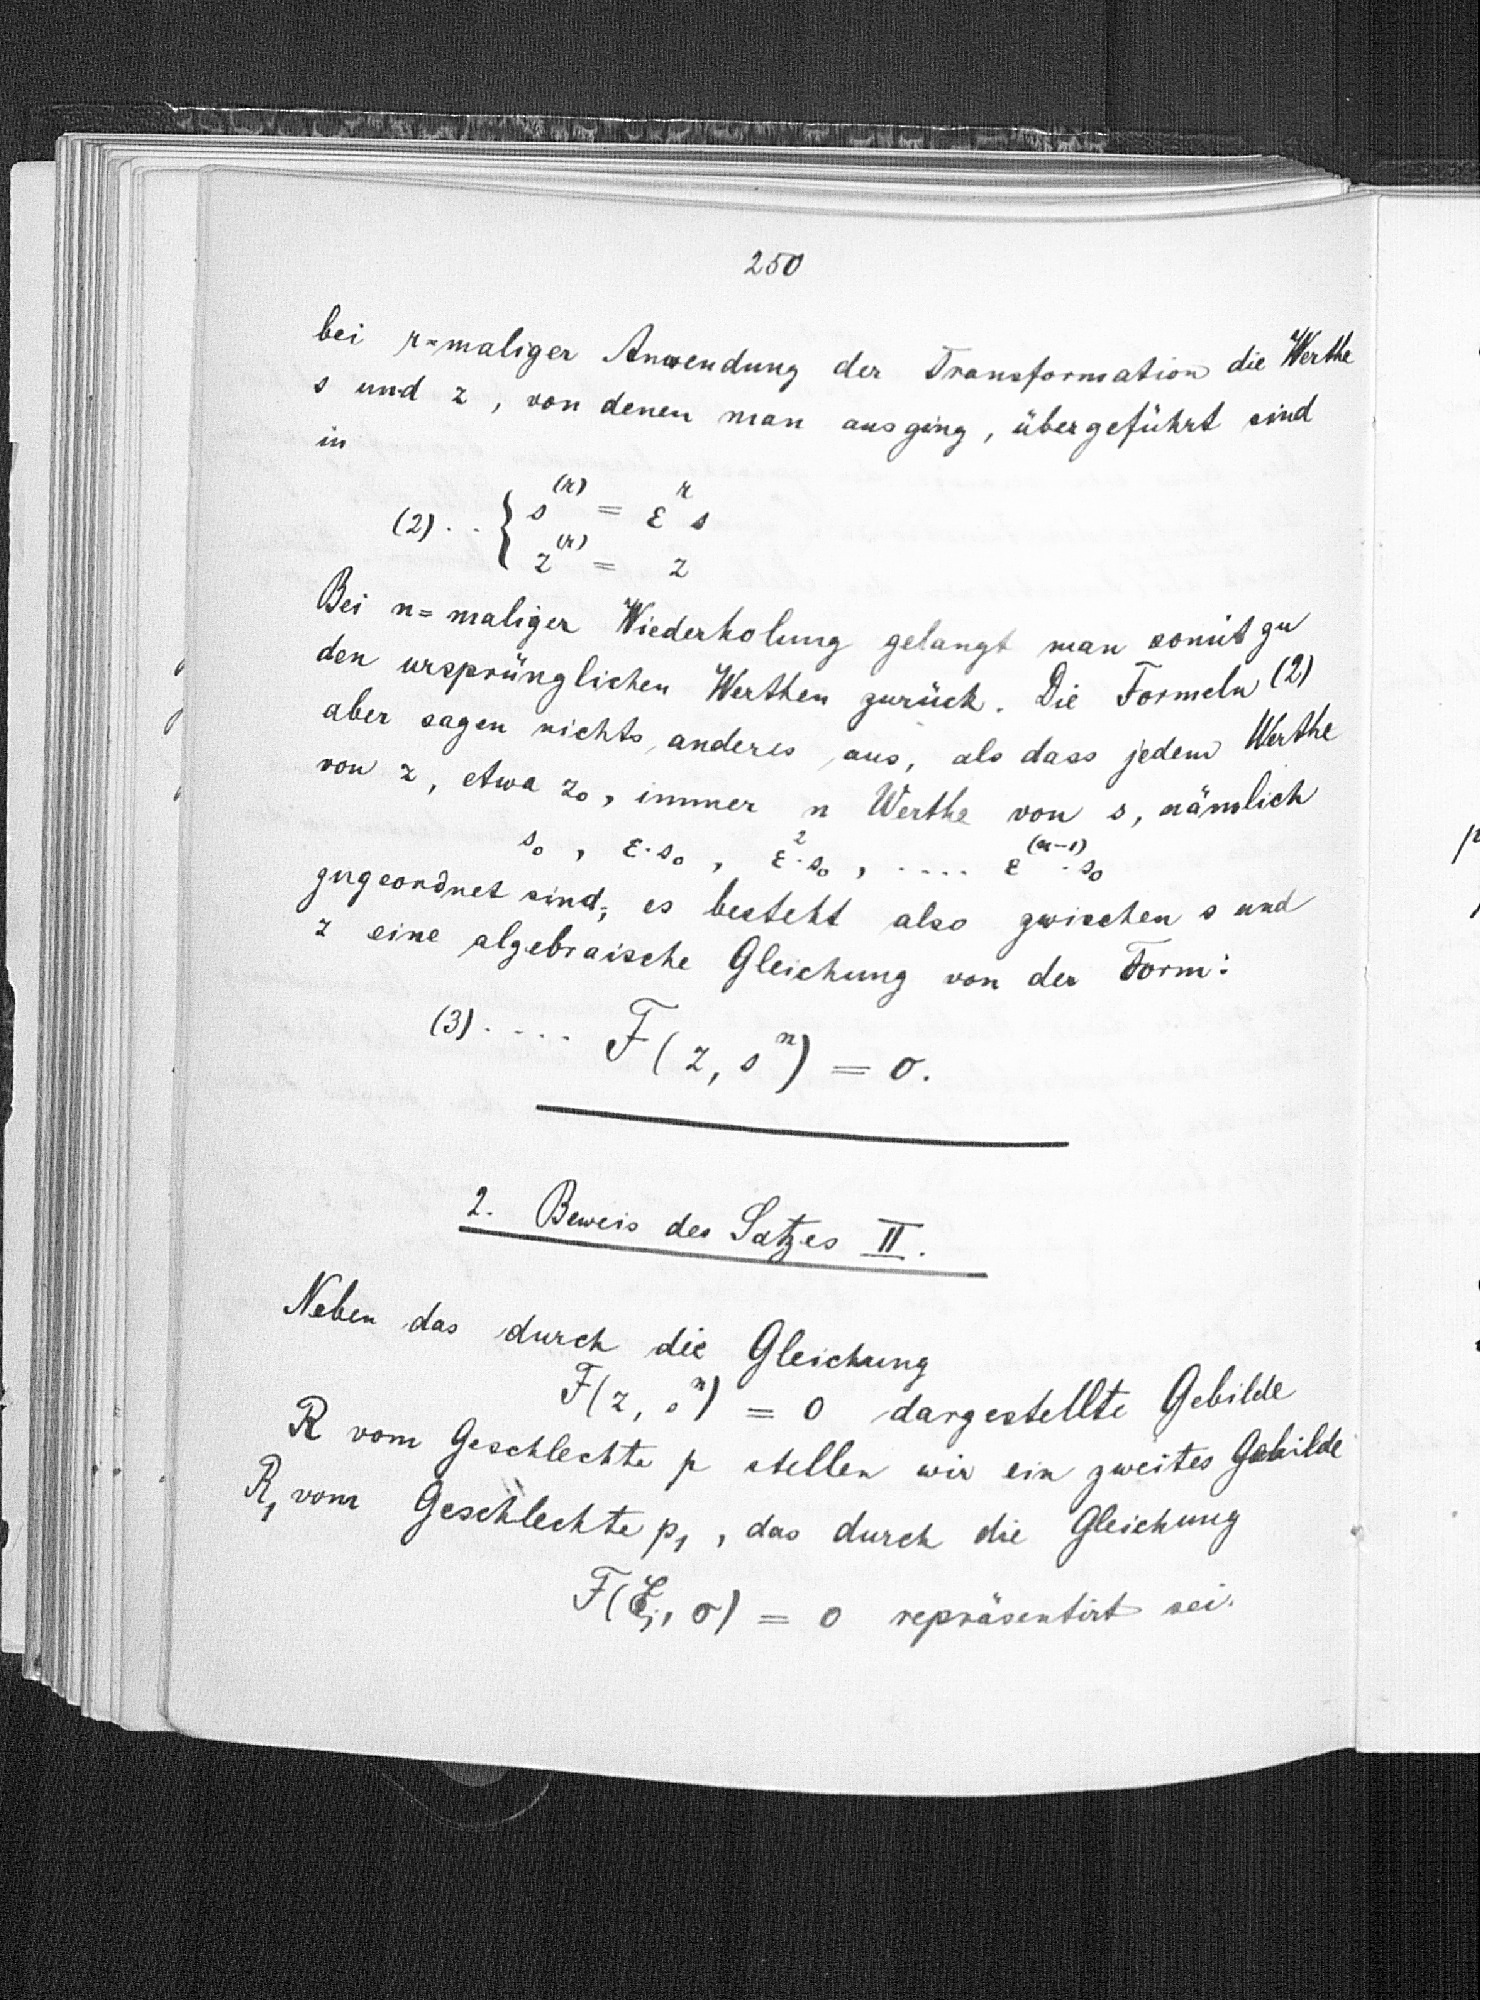 250
bei r=maliger Anwendung der Transformation die Werthe
s und z, von denen man ausging, übergeführt sind
in
(2) . . { s^(r) = ε^r s
z^(r) = z
Bei n=maliger Wiederholung gelangt man somit zu
den ursprünglichen Werthen zurück. Die Formeln (2)
aber sagen nichts anderes aus, als dass jedem Werthe
von z, etwa z₀, immer n Werthe von s, nämlich
s₀, ε·s₀, ε²·s₀, .... ε^(n-1)·s₀
zugeordnet sind; es besteht also zwischen s und
z eine algebraische Gleichung von der Form:
(3) . . . . F(z, sⁿ) = 0.
2. Beweis des Satzes II.
Neben das durch die Gleichung
F(z, sⁿ) = 0 dargestellte Gebilde
R vom Geschlechte p stellen wir ein zweites Gebilde
R₁ vom Geschlechte p₁, das durch die Gleichung
F(ζ, σ) = 0 repräsentirt sei.